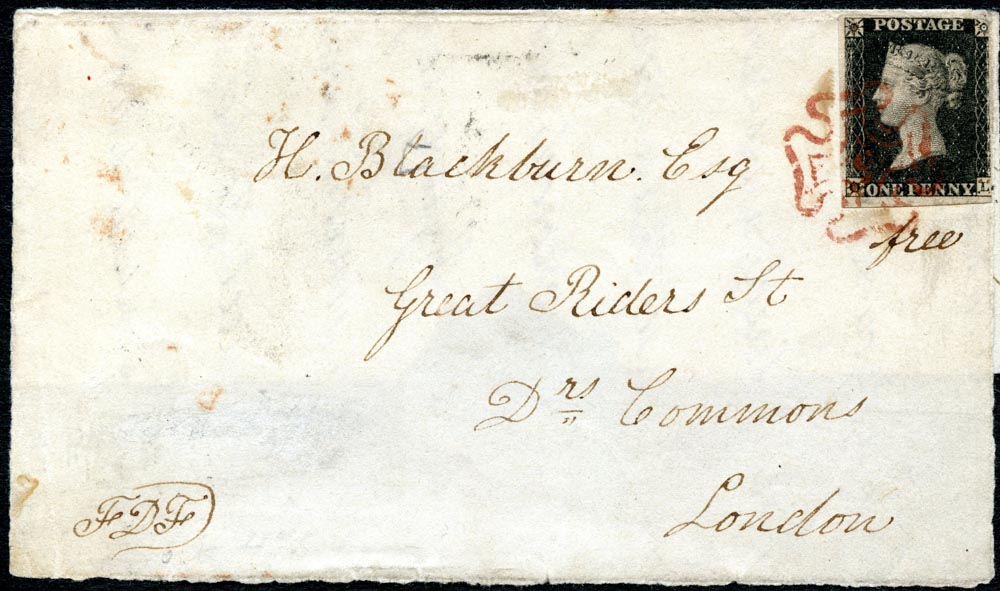 POSTAGE
ONE PENNY
free
H. Blackburn. Esq
Great Riders St
Drs Commons
London
FDF